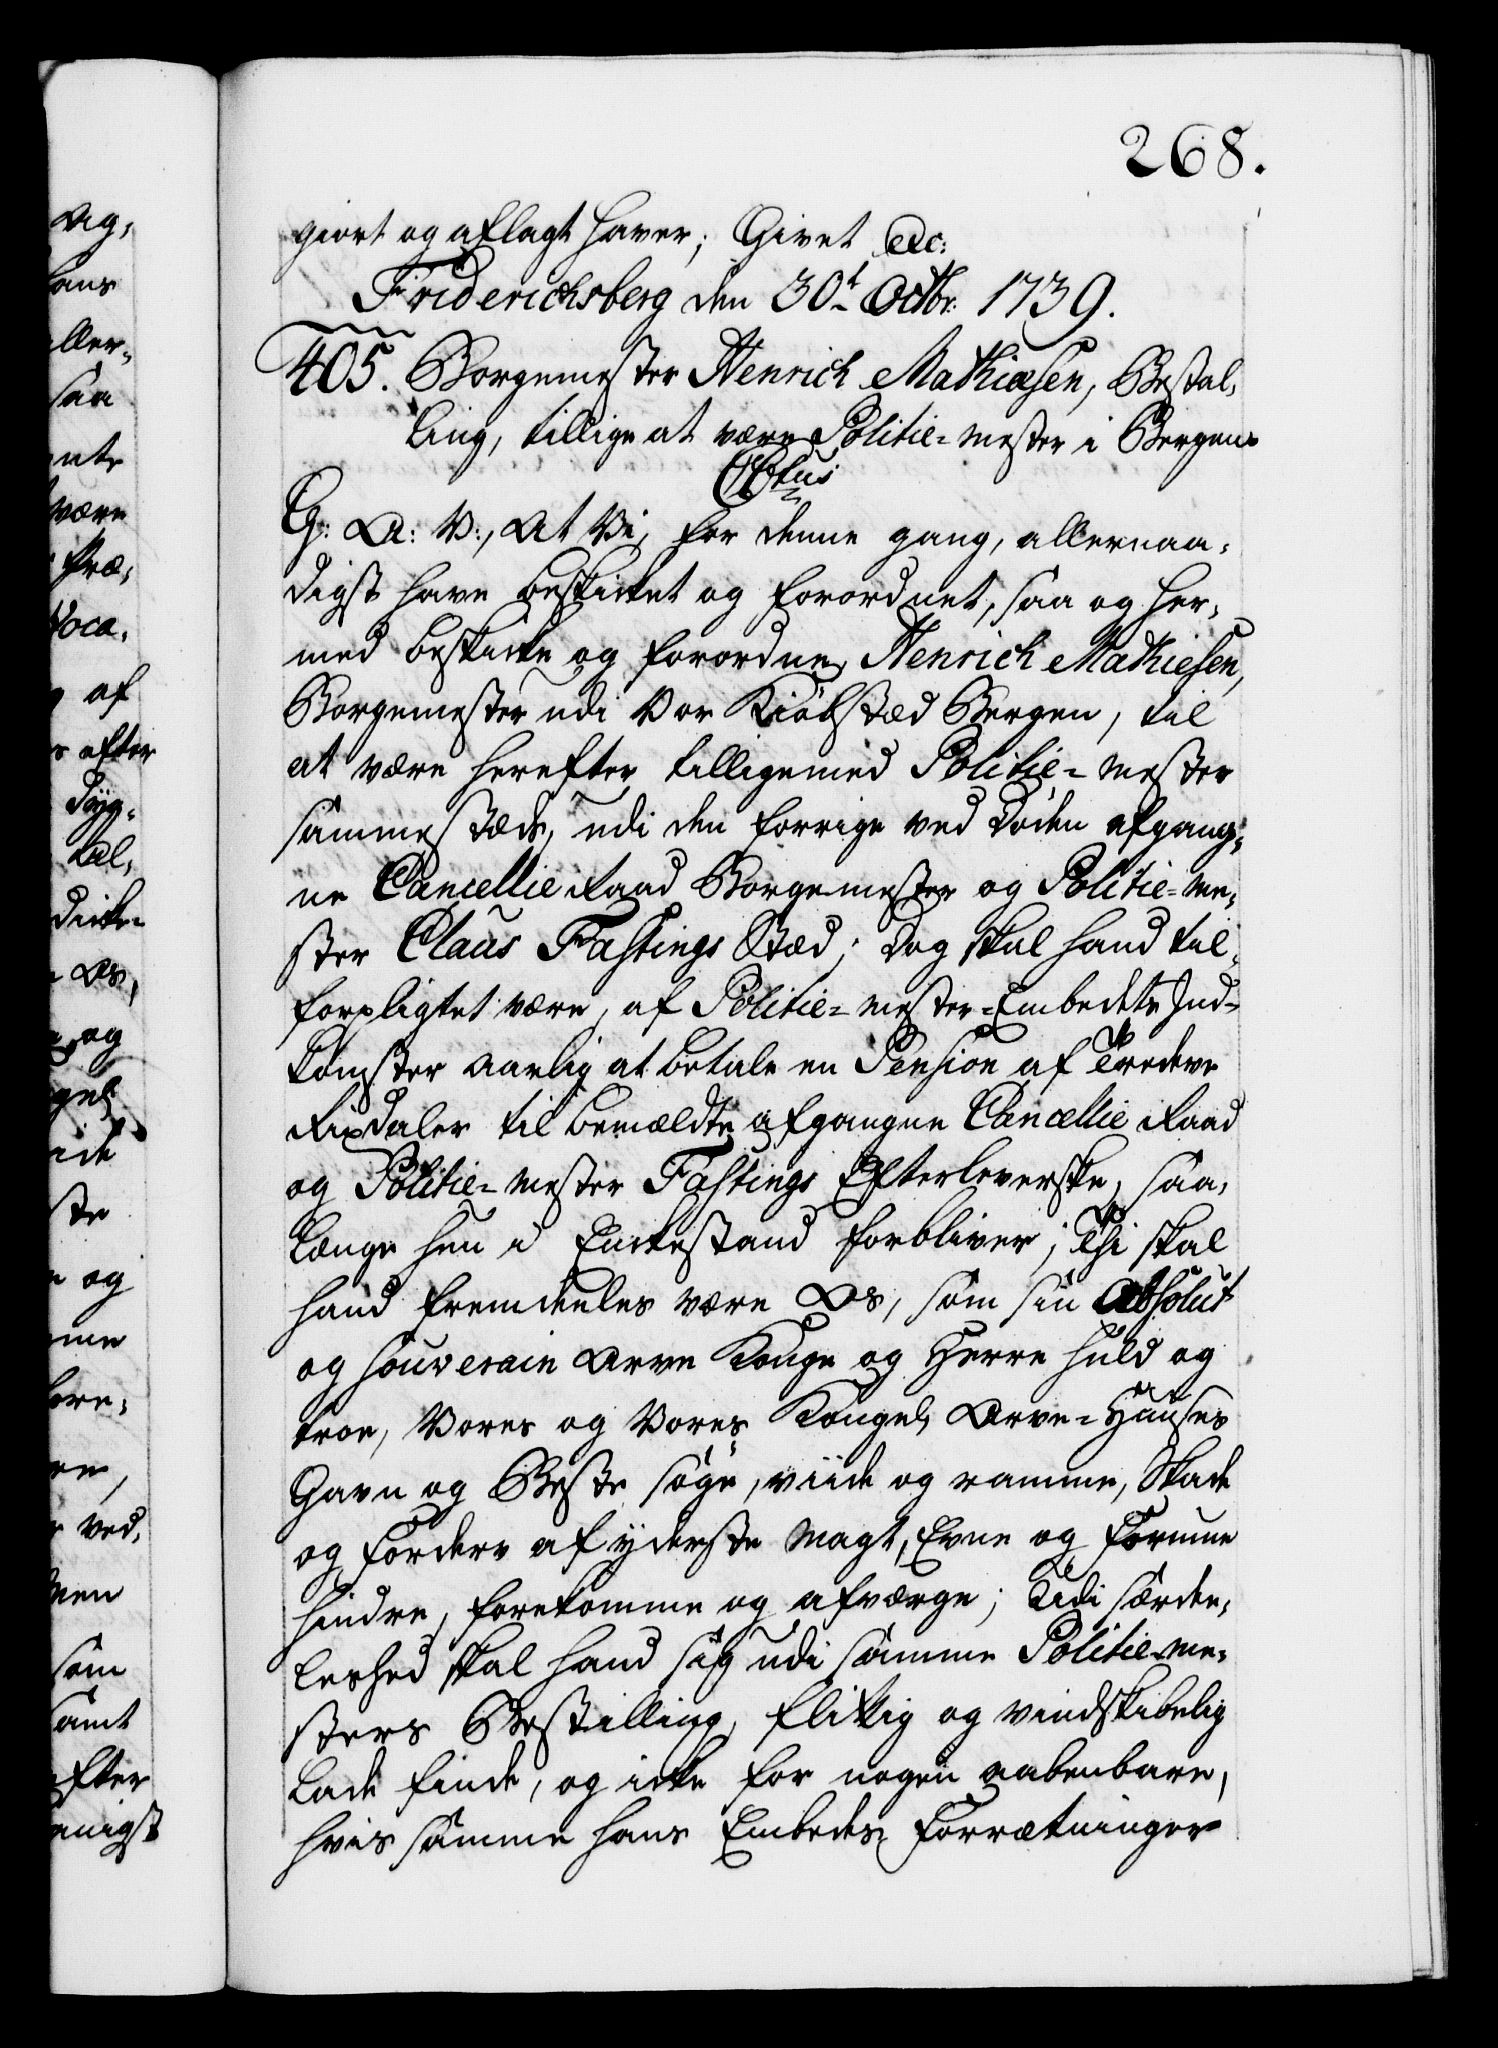 268.
giort og aflagt haver; Givet &c:
Friderichsberg den 30t Octbr: 1739.
405. Borgemester Henrich Mathiesen, Bestal-
ling, tillige at være Politie-mester i Bergen.
C: A: V:, At Vi, for denne gang, allernaa-
digst have beskicket og forordnet, saa og her-
med beskicke og forordne, Henrich Mathiesen,
Borgemester udi Vor Kiøbstæd Bergen, til
at være herefter tilligemed Politie-mester
sammestæds, udi den forrige ved Døden afgang-
ne Cancellie Raad Borgemester og Politie-me-
ster Claus Fastings Stæd; Dog skal hand til-
forpligtet være, af Politie-mester-Embedets Ind-
komster aarlig at betale en Pension af Tredeve
Rixdaler til bemældte afgangne Cancellie Raad
og Politie-mester Fastings Efterleverske, saa-
længe hun i Enckestand forbliver; Thi skal
hand fremdeeles være Os, som sin Absolut
og souverain Arve Konge og Herre huld og
troe, Vores og Vores Kongel. Arve-Huuses
Gavn og Beste søge, viide og ramme, Skade
og Forderv af yderste Magt, Evne og Formue
hindre, forekomme og afværge; Udi særde-
leshed skal hand sig udi samme Politie-me-
sters Bestilling, flittig og vindskibelig
lade finde, og icke for nogen aabenbare,
hvis samme hans Embedes Forrætninger